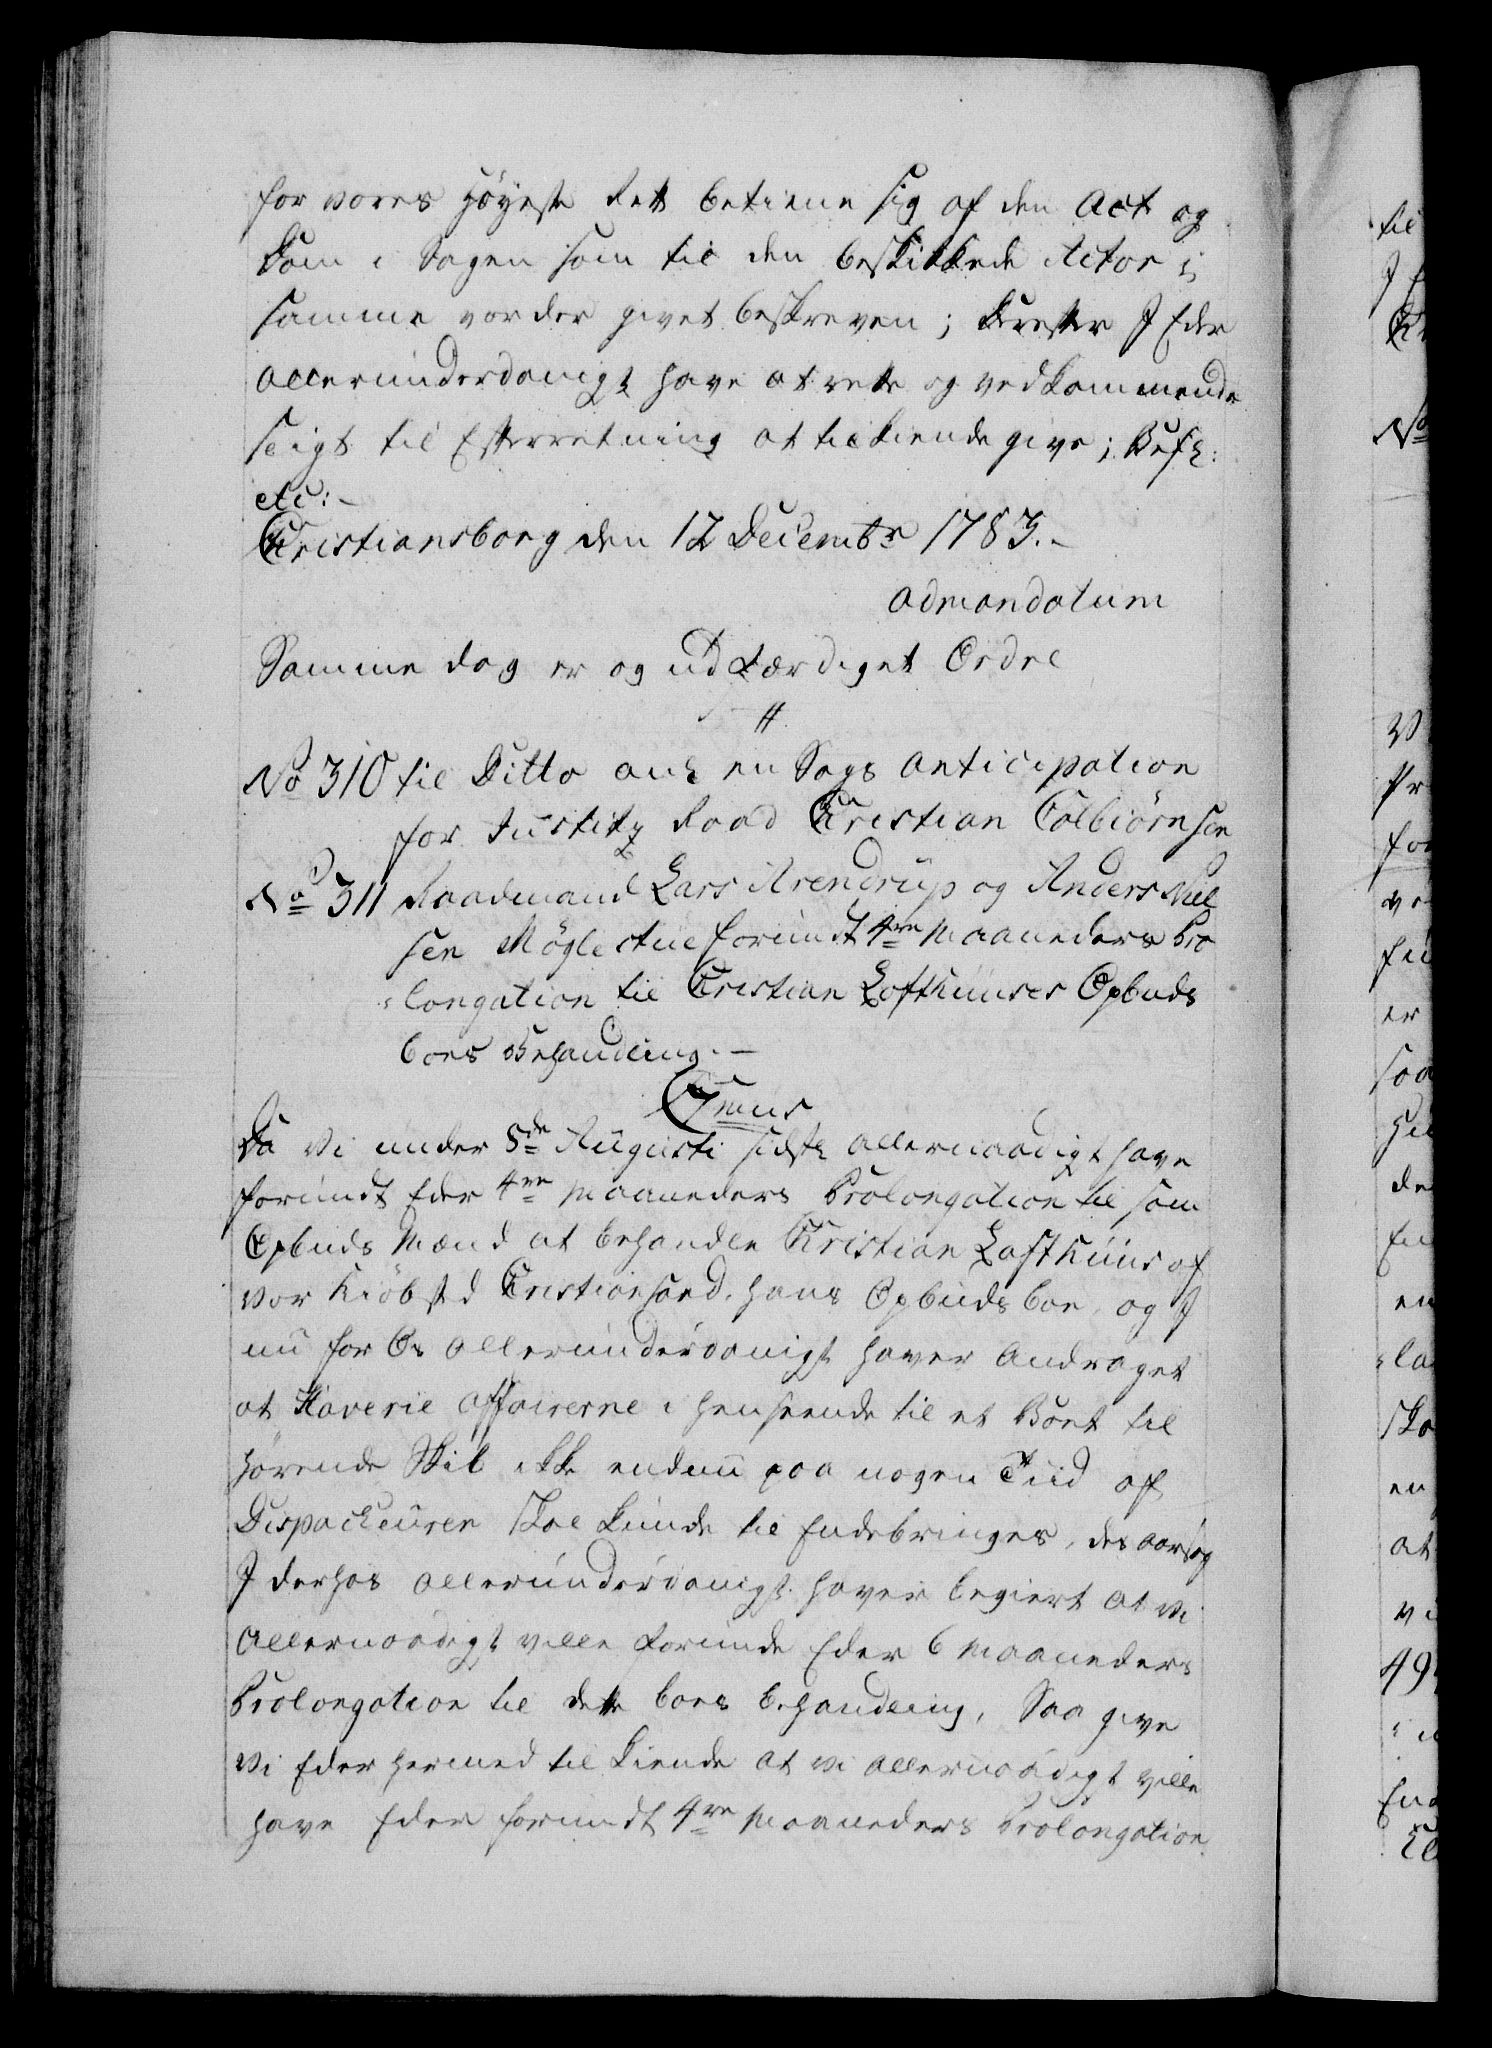 for vores Høyeste Rett betiene sig af den Act og
Dom i Sagen som til den beskikkede Actor i
samme vorder givet beskreven; Derefter I Eder
allerunderdanigst have at rette og vedkommende
sligt til Efterretning at tilkiende give; Befh:
etc:-
Christiansborg den 12 Decembr 1783.-
admandatum
Samme dag er og udfærdiget Ordre
No 310 til Ditto anl en Sags anticipation
for Justitz Raad Christian Colbiørnsen
No 311 Raadmand Lars Arendrup og Anders Niel
sen Møglestue forundt 4re Maaneders Pro
-longation til Christian Lofthuuses Opbuds
boes Behandling.-
Da Vi under 5de Augusti sidstl allernaadigst have
forundt Eder 4re Maaneders Prolongation til som
Opbuds Mænd at behandle Christian Lofthuus af
vor Kiøbstd Christiansand, hans Opbuds boe, og I
nu for Os allerunderdanigst haver Andraget
at Haverie affairerne i henseende til et Boet til
hørende Skib ikke endnu paa nogen Tiid af
Dispacheuren skal kunde til Endebringes, des aarsag
I derhos allerunderdanigst haver begiert at vi
Allernaadigst ville forunde Eder 6 Maaneders
Prolongation til dette boes behandling, Saa give
Vi Eder hermed til kiende at vi allernaadigst ville
have Eder forundt 4re Maaneders Prolongation
til
No
Pr
for
er
saa
de
en
at